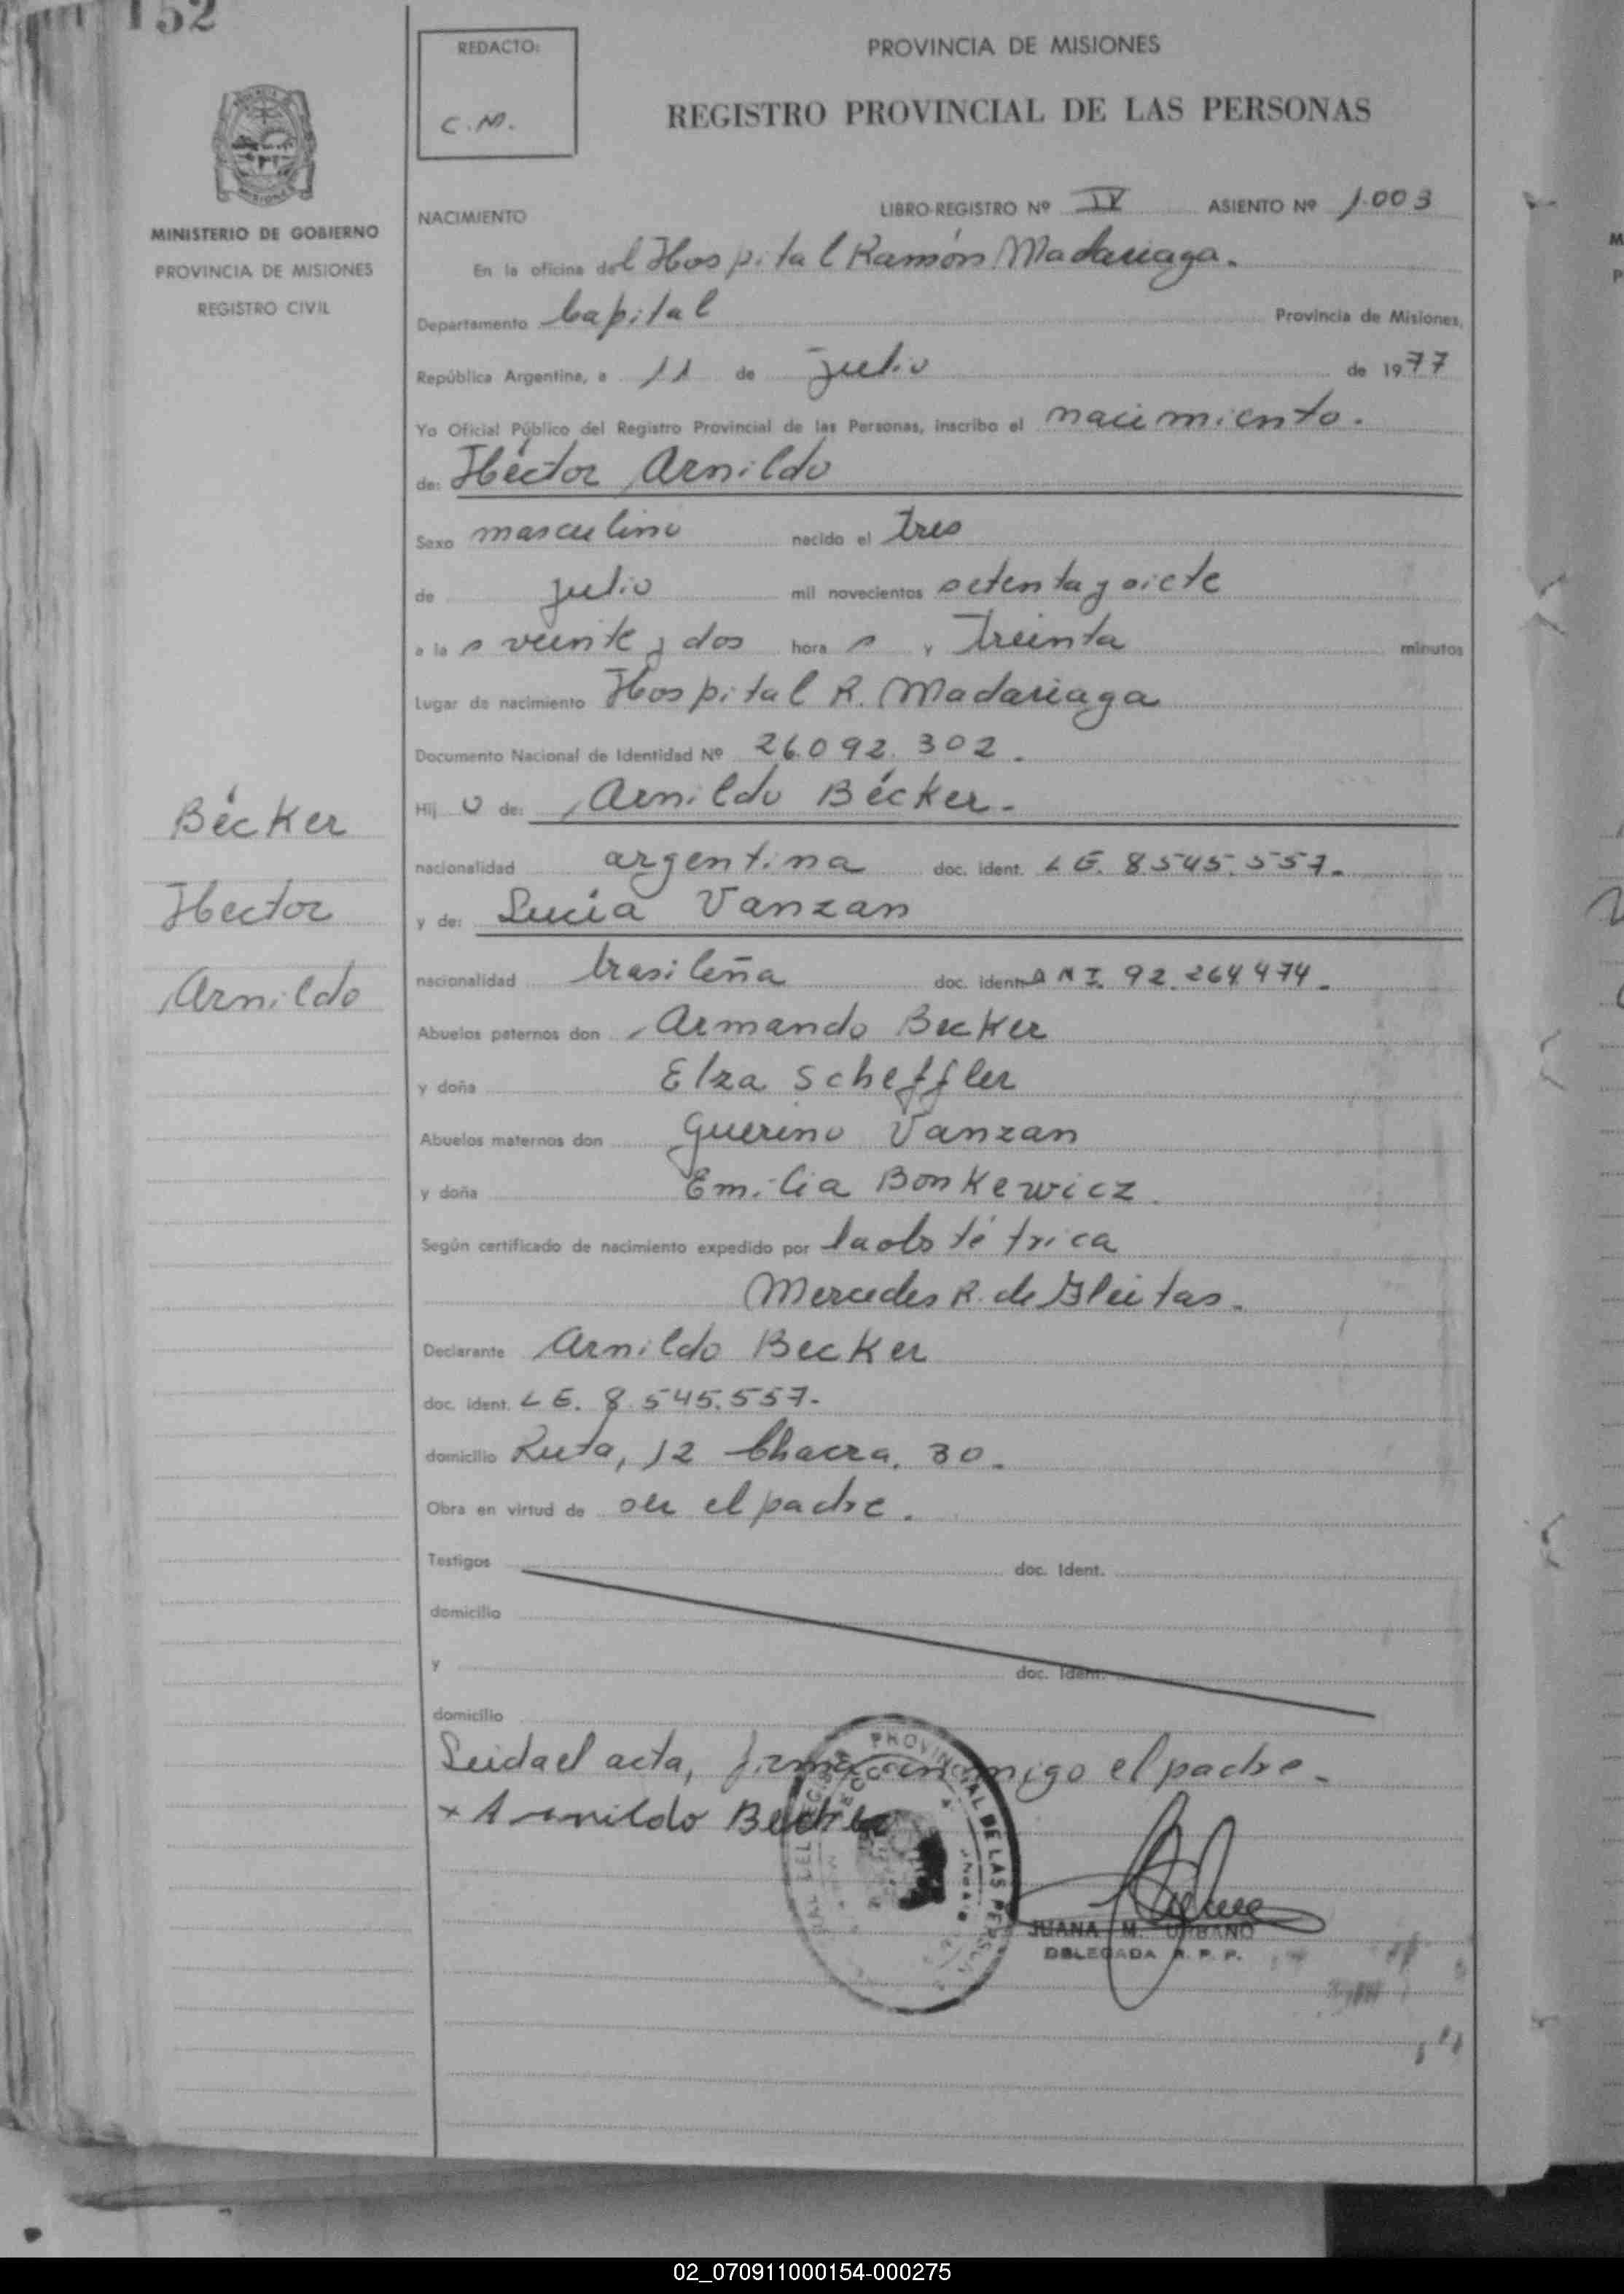 152
REDACTO:
C.M.
PROVINCIA DE MISIONES
REGISTRO PROVINCIAL DE LAS PERSONAS
MINISTERIO DE GOBIERNO
PROVINCIA DE MISIONES
REGISTRO CIVIL
NACIMIENTO
LIBRO-REGISTRO Nº IV ASIENTO Nº 1.003
En la oficina del Hospital Ramón Madariaga.
Departamento Capital Provincia de Misiones,
República Argentina, a 11 de julio de 1977
Yo Oficial Público del Registro Provincial de las Personas, inscribo el nacimiento.
de: Héctor Arnildo
Sexo masculino nacido el tres
de julio mil novecientos setenta y siete
a la s veinte y dos hora s y treinta minutos
Lugar de nacimiento Hospital R. Madariaga
Documento Nacional de Identidad Nº 26.092.302.
Hij o de: Arnildo Bécker.
nacionalidad argentina doc. ident. L E. 8545.557.
y de: Lucia Vanzan
nacionalidad brasileña doc. ident. D N I. 92.264.474.
Abuelos paternos don Armando Becker
y doña Elza Scheffler
Abuelos maternos don Guerino Vanzan
y doña Emilia Bonkewicz
Según certificado de nacimiento expedido por la obstétrica
Mercedes R. de Gleitas.
Declarante Arnildo Becker
doc. ident. L E. 8.545.557.
domicilio Ruta, 12 Chacra, 30.
Obra en virtud de ser el padre.
Testigos doc. Ident.
domicilio
y doc. Ident.
domicilio
Leida el acta, firma conmigo el padre.
x Arnildo Becker
PROVINCIAL DE LAS PERSONAS
JUANA M. URBANO
DELEGADA R. P. P.
Bécker
Hector
Arnildo
02_070911000154-000275